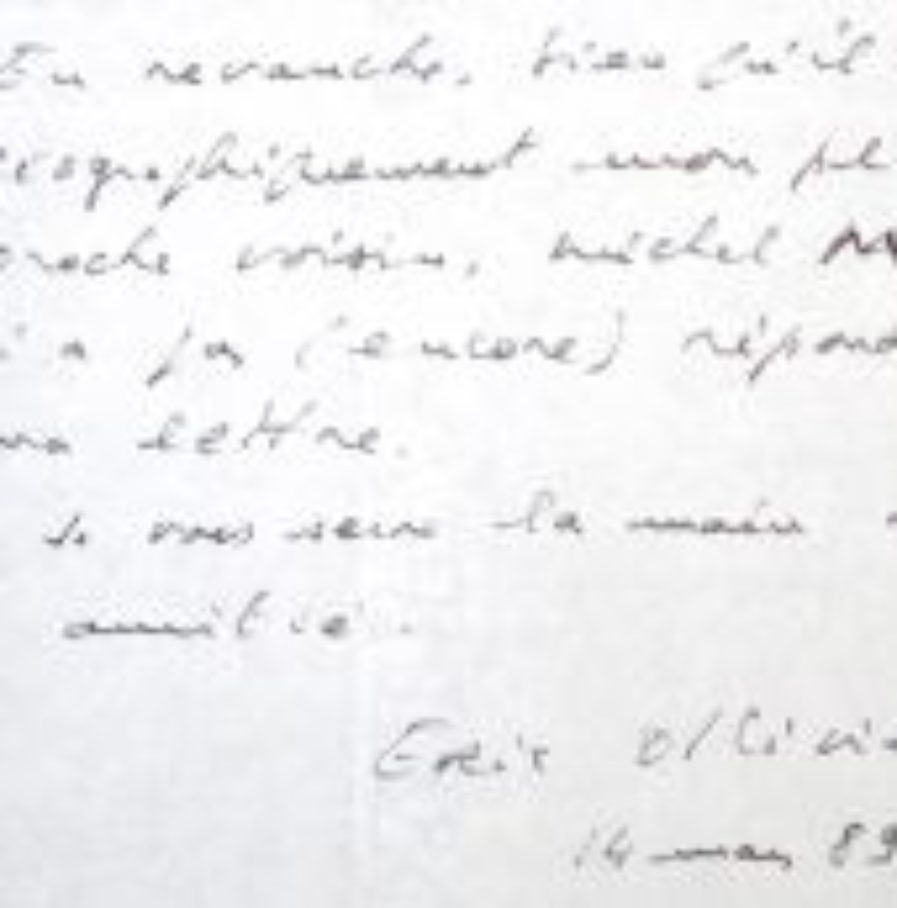 En revanche, bien qu'il
éographiquement mon pl
proche voisin, Michel M
n'a pas (encore) répond
ma lettre.
Je vous serre la main
amitié.
Eric Ollivie
14 mars 89